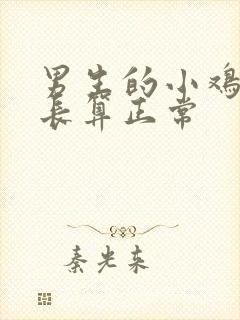 男生的小鸡
长算正常
秦光东